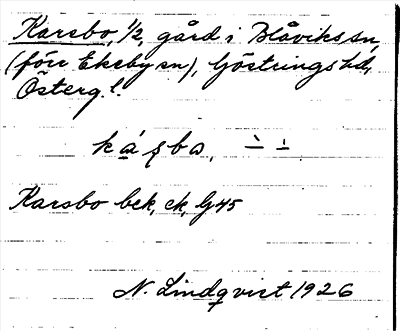 Karsbo, 1/2, gård i Blåviks sn,
(förr Ekeby sn), Göstrings hd,
Österg. l.
Karsbo bek, ck, G45
N. Lindqvist 1926